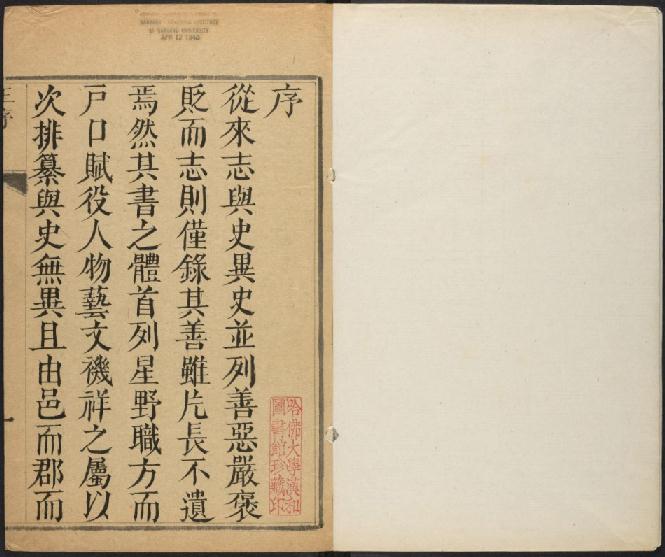 序
從來志與史異史並列善惡嚴褒
貶而志則僅錄其善雖片長不遺
焉然其書之體首列星野職方而
戸口賦役人物藝文禨祥之屬以
次排纂與史無異且由邑而郡而
王序
一
哈佛大學漢和
圖書館珍藏印
APR 12 1945